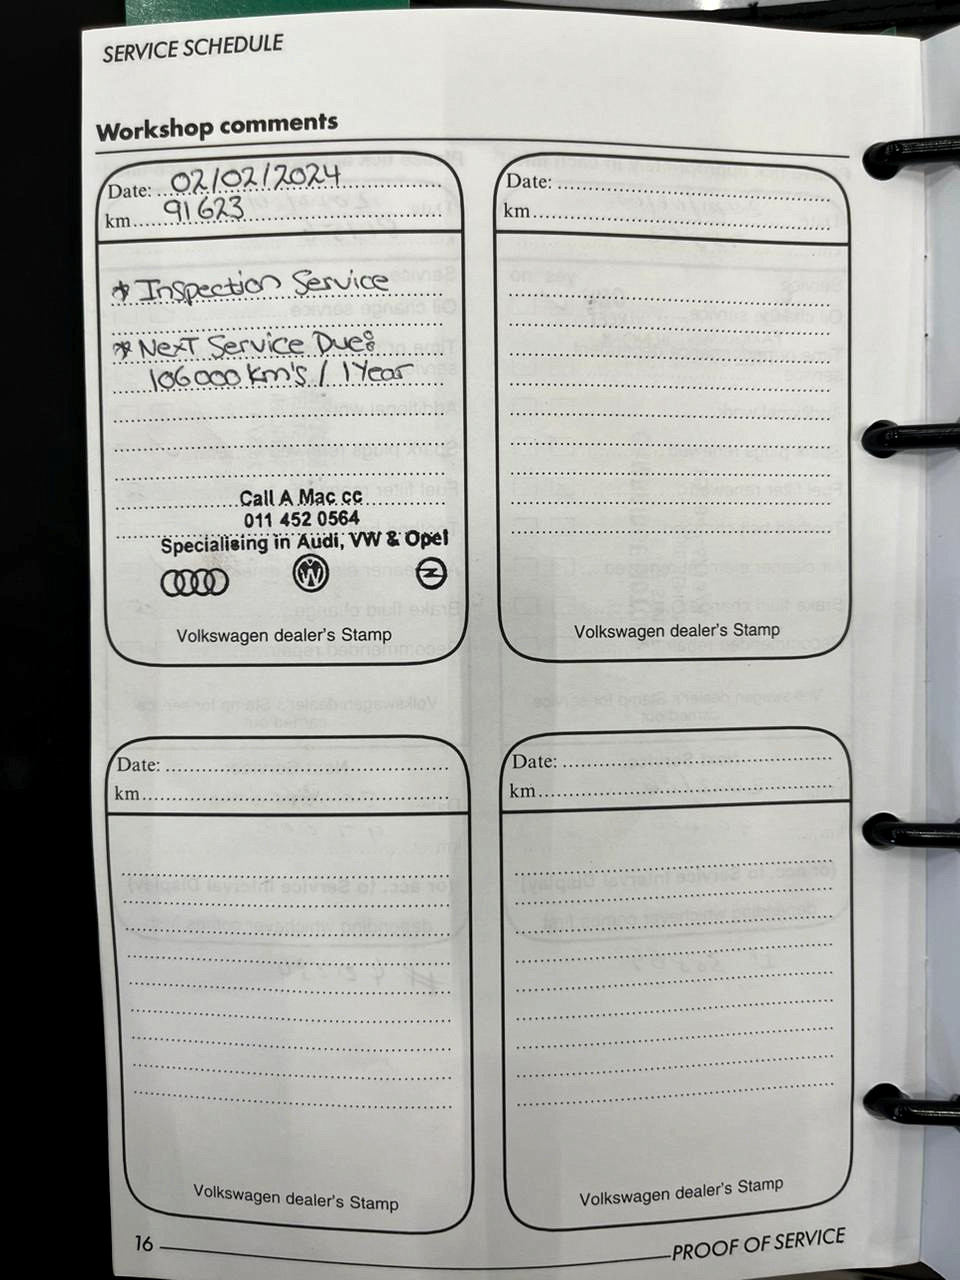 SERVICE SCHEDULE
Workshop comments
Date: 02/02/2024
km 91623
* Inspection Service
* Next Service Due:
106000 km's / 1 Year
Call A Mac cc
011 452 0564
Specialising in Audi, VW & Opel
Volkswagen dealer's Stamp
Date:
km
Volkswagen dealer's Stamp
Date:
km
Volkswagen dealer's Stamp
Date:
km
Volkswagen dealer's Stamp
16
PROOF OF SERVICE